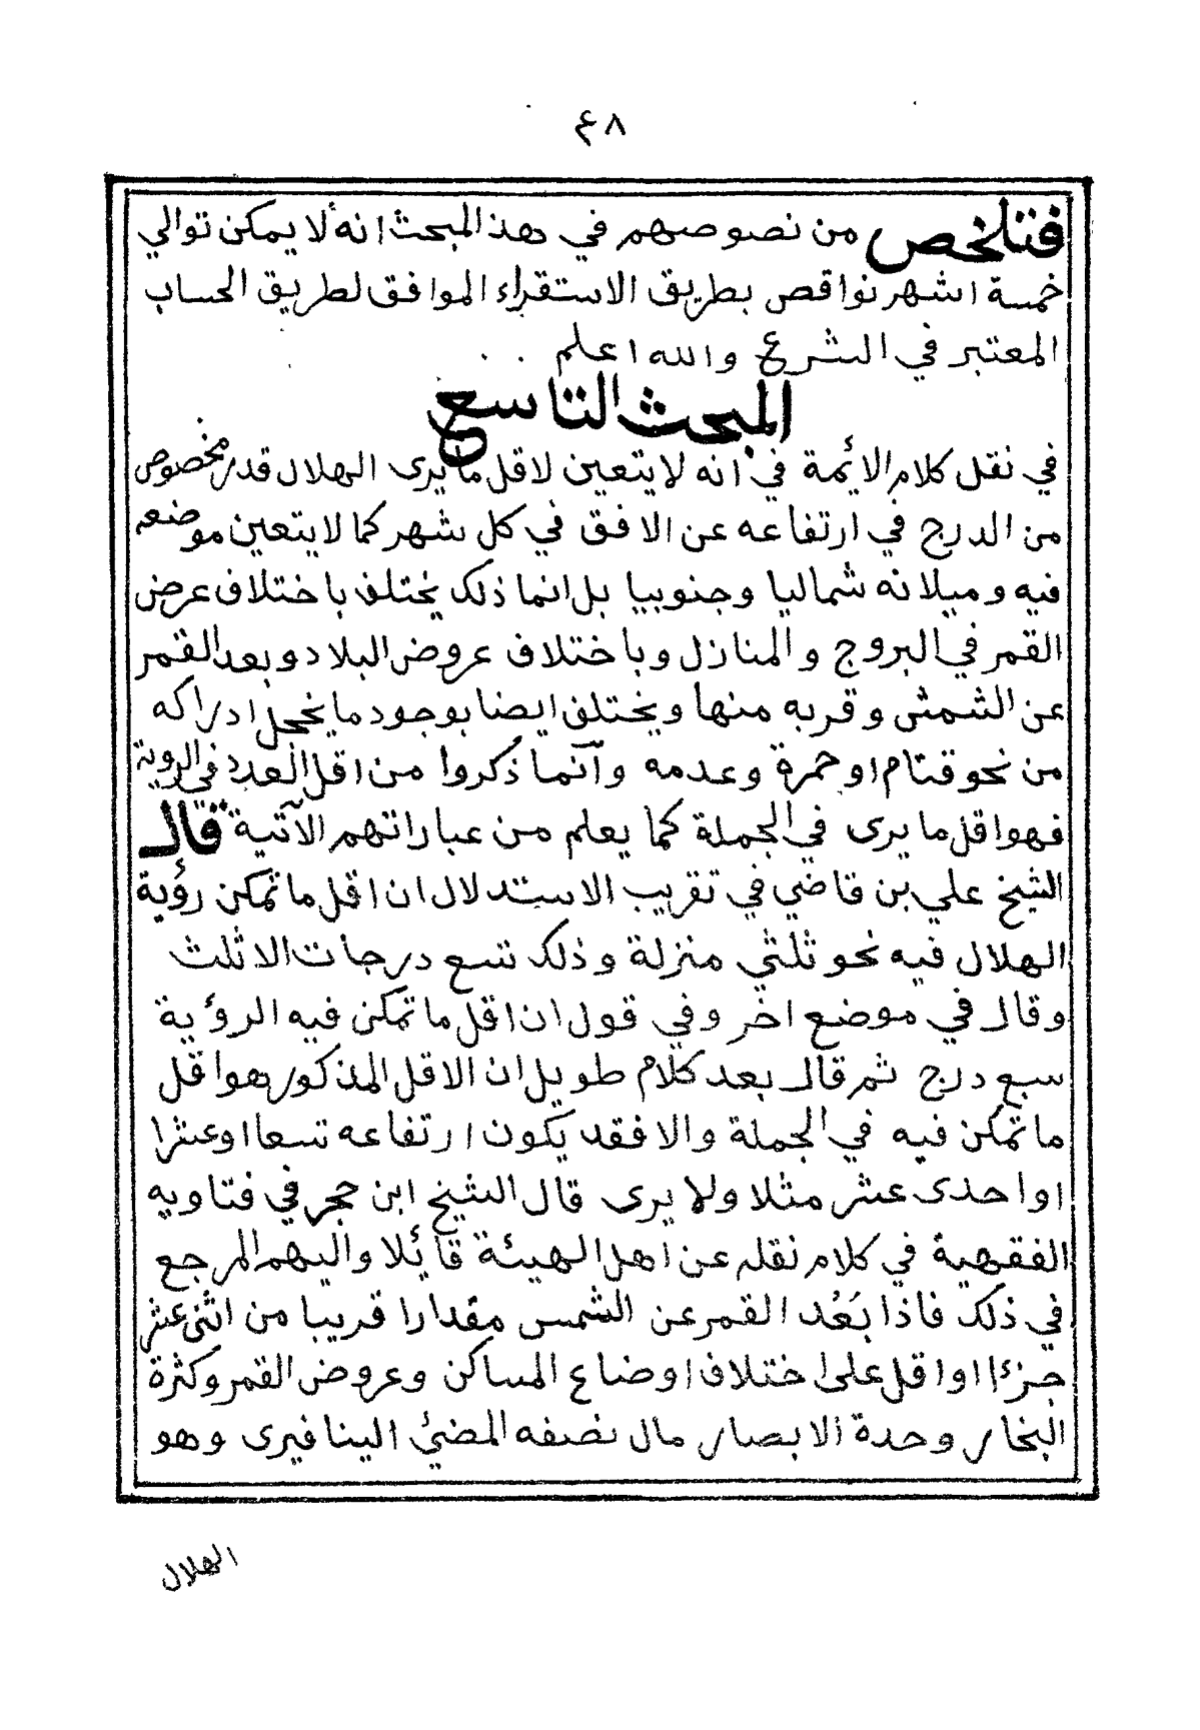 ٤٨
فتلخص من نصوصهم في هذ المبحث انه لا يمكن توالي
خمسة اشهر نواقص بطريق الاستقراء الموافق لطريق الحساب
المعتبر في الشرع والله اعلم
المبحث التاسع
في نقل كلام الائمة في انه لا يتعين لاقل ما يرى الهلال قدر مخصوص
من الدرج في ارتفاعه عن الافق في كل شهر كما لا يتعين موضعه
فيه وميلانه شماليا وجنوبيا بل انما ذلك يختلف باختلاف عرض
القمر في البروج والمنازل وباختلاف عروض البلاد وبعد القمر
عن الشمس وقربه منها ويختلف ايضا بوجود ما يخجل ادراكه
من نحو قتام او حمرة وعدمه وانما ذكروا من اقل العدد في الروية
فهو اقل ما يرى في الجملة كما يعلم من عباراتهم الآتية قال
الشيخ علي بن قاضي في تقريب الاستدلال ان اقل ما تمكن رؤية
الهلال فيه نحو ثلثي منزلة وذلك تسع درجات الا ثلث
وقال في موضع اخر وفي قول ان اقل ما تمكن فيه الرؤية
سبع درج ثم قال بعد كلام طويل ان الاقل المذكور هو اقل
ما تمكن فيه في الجملة والا فقد يكون ارتفاعه تسعا او عشرا
او احدى عشر مثلا ولا يرى قال الشيخ ابن حجر في فتاويه
الفقهية في كلام نقله عن اهل الهيئة قائلا واليهم المرجع
في ذلك فاذا بَعُد القمر عن الشمس مقدارا قريبا من اثنى عشر
جزءا او اقل على اختلاف اوضاع المساكن وعروض القمر وكثرة
البخار وحدة الابصار مال نصفه المضئ الينا فيرى وهو
الهلال